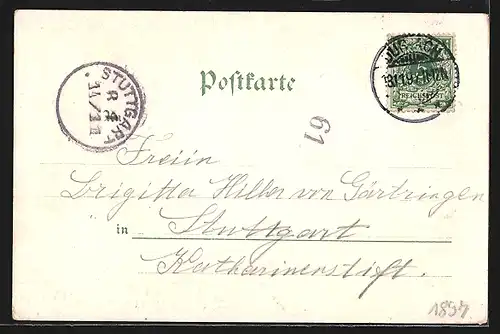 Postkarte
REICHSPOST
STUTTGART
R 4
14/11
61
Freiin
Brigitta Hiller von Gärtringen
in Stuttgart
Katharinenstift.
1897